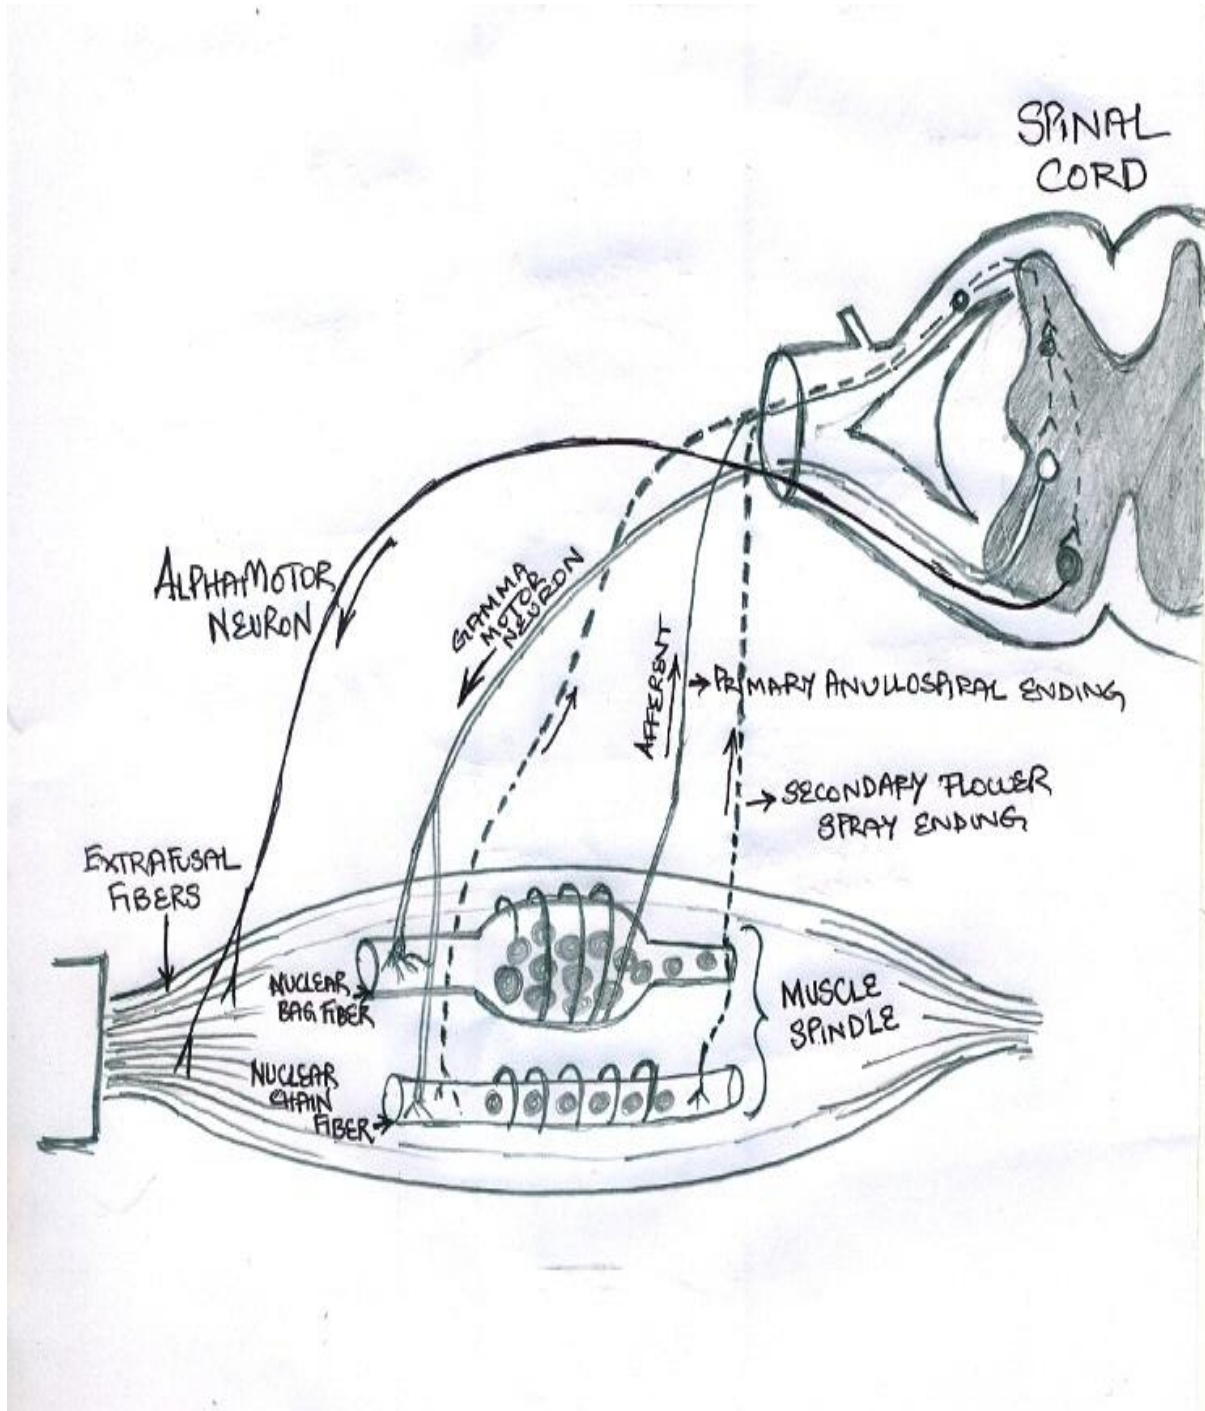 SPINAL
CORD
ALPHA MOTOR
NEURON
GAMMA
MOTOR
NEURON
AFFERENT
PRIMARY ANULLOSPIRAL ENDING
SECONDARY FLOWER
SPRAY ENDING
EXTRAFUSAL
FIBERS
NUCLEAR
BAG FIBER
MUSCLE
SPINDLE
NUCLEAR
CHAIN
FIBER